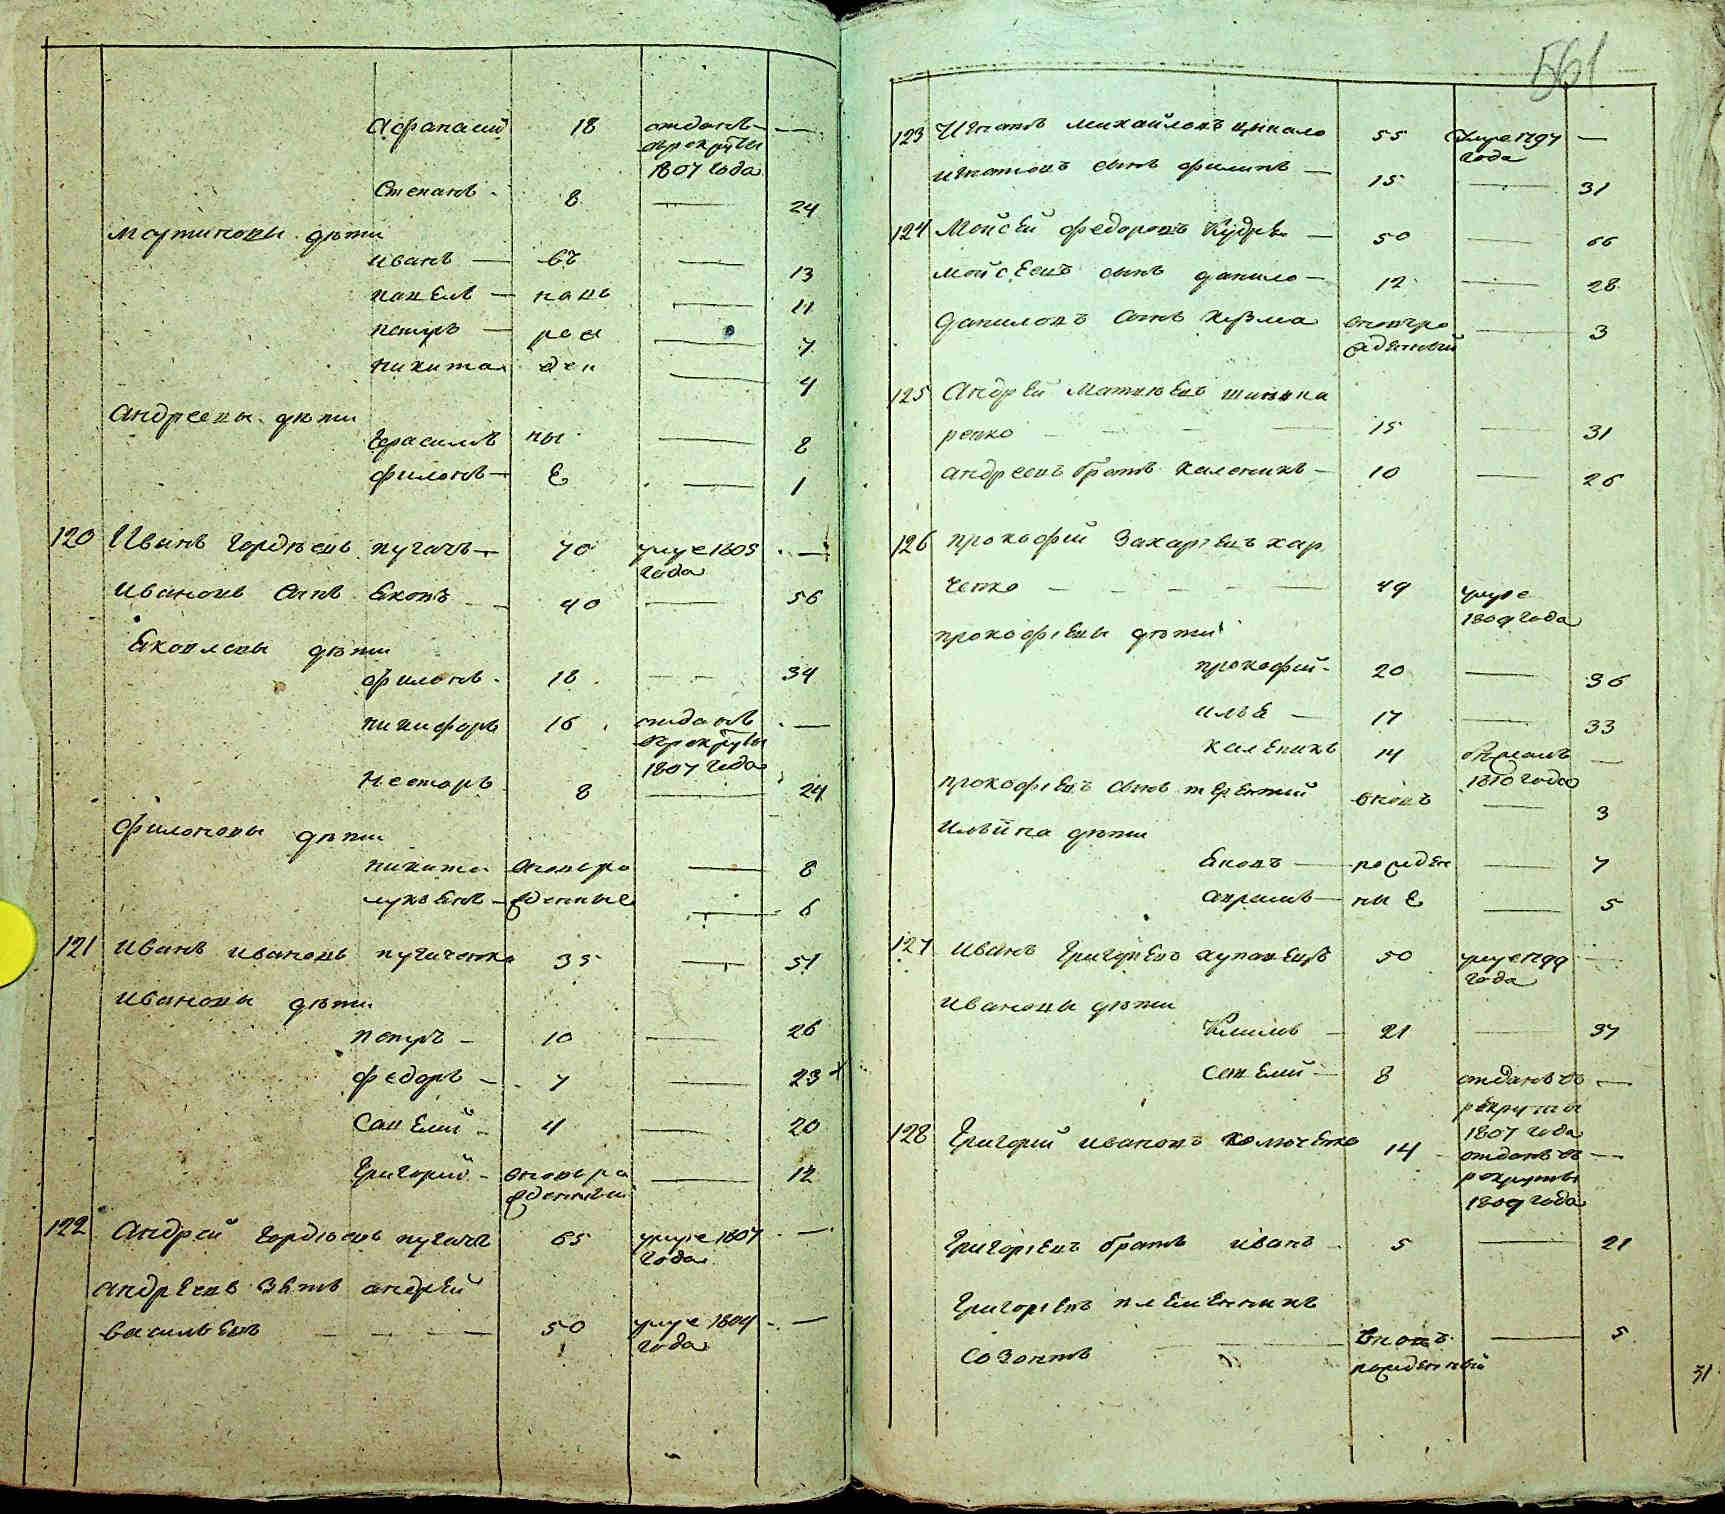 561
Афанасий 18 отданъ —
врекруты
1807 года
Степанъ 8 — 24
Мартиновы дѣти
иванъ — въ — 13
павелъ — новь — 11
петръ — рож — 7
никита ден — 4
Андреевы дѣти
Герасимъ ны — 8
филонъ — Е — 1
120 Иванъ Гордѣевъ пугачъ — 70 умре 1805 —
года
Ивановъ сынъ Яковъ 40 — 56
Яковлевы дѣти
филонъ 18 — 34
никифоръ 16 отданъ —
врекруты
1807 года
Несторъ 8 — 24
Филоновы дѣти
никита вновьро — 8
жденные — 6
121 Иванъ Ивановъ пугаченко 35 — 51
Ивановы дѣти
петръ — 10 — 26
федоръ — 7 — 23
Савелий 4 — 20
Григорий — вновьро — 12
жденный
122 Андрей Гордѣевъ пугачъ 65 умре 1807 —
года
андреевъ зять андрей
васильевъ — 50 умре 1804 —
года
123 Игнатъ Михайловъ цыкало 55 умре 1797 —
года
игнатовъ сынъ филипъ — 15 — 31
124 Мойсей федоровъ Кудря — 50 — 66
мойсеевъ сынъ данило — 12 — 28
даниловъ сынъ кузма вновьро — 3
жденный
125 Андрей Матвѣевъ
ренко 15 — 31
андреевъ братъ каленикъ — 10 — 26
126 прокофий Захарьевъ хар
ченко — 49 умре
1809 года
прокофіевы дѣти
прокофий 20 — 36
илья — 17 — 33
каленикъ 14 —
1810 года
прокофіевъ сынъ терентий вновь — 3
ильина дѣти
Яковъ — рожден — 7
аврамъ — ны Е — 5
127 Иванъ Григорьевъ 50 умре 1799 —
года
Ивановы дѣти
Климъ — 21 — 37
Савелий — 8 отданъ въ —
рекруты
1807 года
128 Григорий ивановъ 14 отданъ въ —
рекруты
1809 года
Григорьевъ братъ иванъ 5 — 21
Григорьевъ племенникъ
Созонтъ вновь — 5
рожденный
31